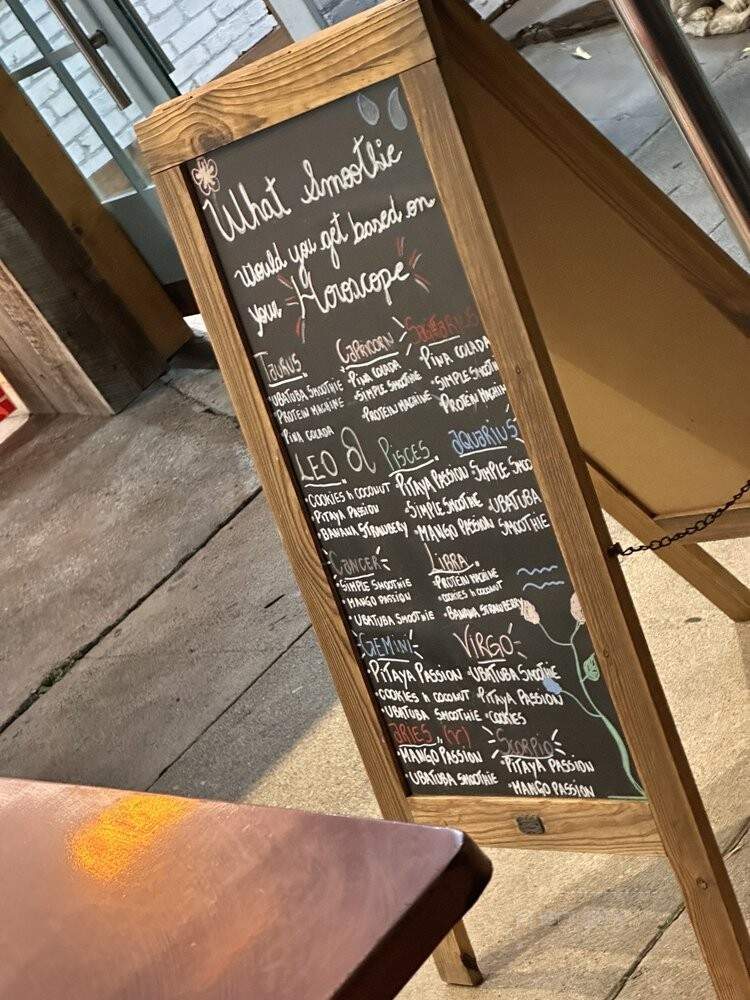 What Smoothie
Would you get based on
your Horoscope
Taurus
• Ubatuba Smoothie
• Protein Machine
• Pina Colada
Capricorn
• Pina Colada
• Simple Smoothie
• Protein Machine
Sagittarius
• Pina Colada
• Simple Smooth
• Protein Machin
LEO ♌
• Cookies n Coconut
• Pitaya Passion
• Banana Strawbery
Pisces
• Pitaya Passion
• Simple Smoothie
• Mango Passion
aquarius
• Simple Smoo
• Ubatuba
Smoothie
Cancer
• Simple Smoothie
• Mango Passion
• Ubatuba Smoothie
Libra
• Protein Machine
• Cookies n Coconut
• Banana Strawbery
Gemini
• Pitaya Passion
• Cookies n Coconut
• Ubatuba Smoothie
Virgo
• Ubatuba Smoothie
• Pitaya Passion
• Cookies
aries (♈)
• Mango Passion
• Ubatuba Smoothie
Scorpio
• Pitaya Passion
• Mango Passion